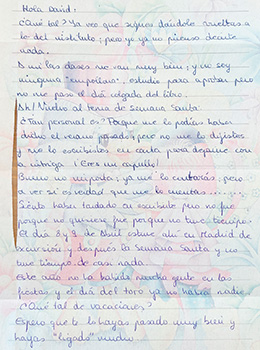 Hola David.
¿Qué tal? Ya veo que sigues dándole vueltas a
lo del instituto; pero yo ya no pienso decirte
nada.
A mi las clases me van muy bien; y no soy
ninguna "empollona". estudio para aprobar pero
no me paso el día colgada del libro.
Bk! Vuelvo al tema de semana Santa.
¿Tan personal es? Porque me lo podías haber
dicho el verano pasado; pero no me lo dijistes
y me lo escribistes en carta para dejarme con
la intriga ¡Eres un capullo!
Bueno no importa; ya me lo contarás; pero
a ver si es verdad que me lo cuentas.....
Siento haber tardado en escribirte pero no fue
porque no quisiese fue porque no tuve tiempo.
El día 8 y 9 de Abril estuve ahí en Madrid de
excursión y después la Semana Santa y no
tuve tiempo de casi nada.
Este año no ha habido mucha gente en las
fiestas y el día del toro ya no había nadie.
¿Qué tal de vacaciones?
Espero que te lo hayas pasado muy bien y
hayas "ligado" mucho